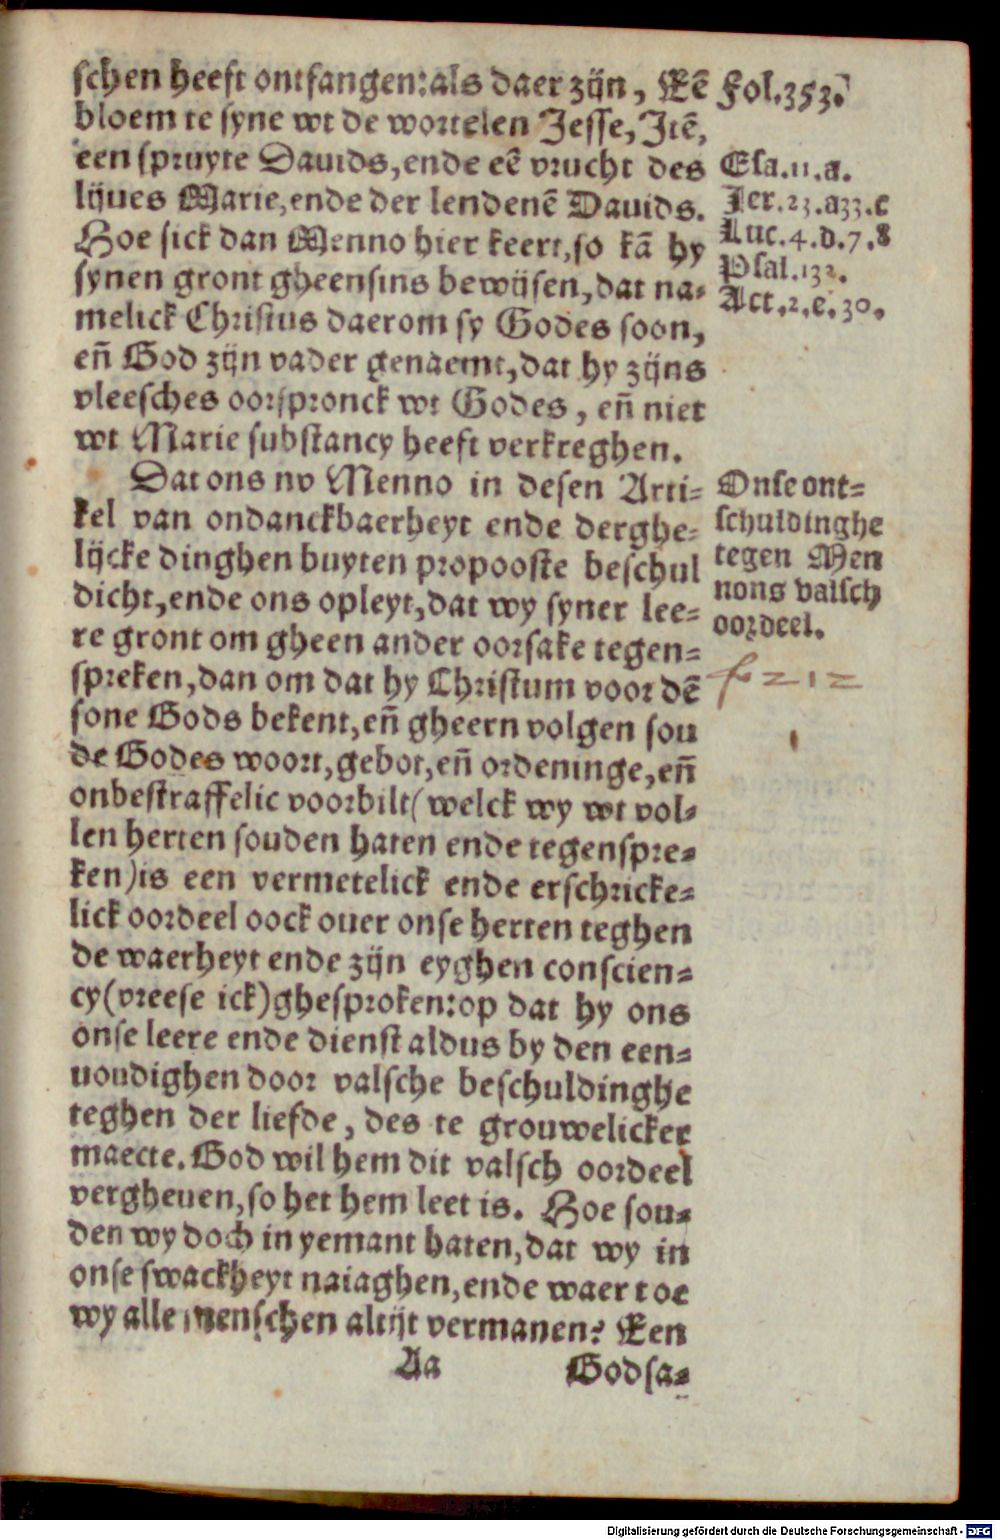 schen heeft ontfangen: als daer zijn, Eē
bloem te syne wt de wortelen Jesse, Jtē,
een spruyte Dauids, ende eē vrucht des
lijues Marie, ende der lendenē Dauids.
Hoe sick dan Menno hier keert, so kā hy
synen gront gheensins bewijsen, dat na-
melick Christus daerom sy Godes soon,
eñ God zijn vader genaemt, dat hy zijns
vleesches oorspronck wt Godes, eñ niet
wt Marie substancy heeft verkreghen.
Dat ons nv Menno in desen Arti-
kel van ondanckbaerheyt ende derghe-
lijcke dinghen buyten propooste beschul
dicht, ende ons opleyt, dat wy syner lee-
re gront om gheen ander oorsake tegen-
spreken, dan om dat hy Christum voor dē
sone Gods bekent, eñ gheern volgen sou
de Godes woort, gebot, eñ ordeninge, eñ
onbestraffelic voorbilt (welck wy wt vol-
len herten souden haten ende tegenspre-
ken) is een vermetelick ende erschricke-
lick oordeel oock ouer onse herten teghen
de waerheyt ende zijn eyghen conscien-
cy (vreese ick) ghesproken: op dat hy ons
onse leere ende dienst aldus by den een-
uoudighen door valsche beschuldinghe
teghen der liefde, des te grouwelicker
maecte. God wil hem dit valsch oordeel
vergheuen, so het hem leet is. Hoe sou-
den wy doch in yemant haten, dat wy in
onse swackheyt naiaghen, ende waer toe
wy alle menschen altijt vermanen? Een
Aa Godsa-
Fol. 353.
Esa. 11. a.
Jer. 23. a 33. c
Luc. 4. d. 7. 8
Psal. 132.
Act. 2. e. 30.
Onse ont-
schuldinghe
tegen Men
nons valsch
oordeel.
212
Digitalisierung gefördert durch die Deutsche Forschungsgemeinschaft - DFG